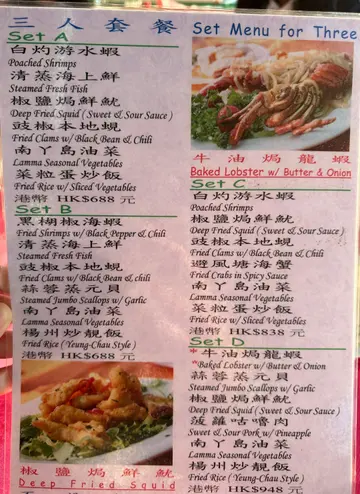 三人套餐
Set Menu for Three
Set A
白灼游水蝦
Poached Shrimps
清蒸海上鮮
Steamed Fresh Fish
椒鹽焗鮮魷
Deep Fried Squid ( Sweet & Sour Sauce )
豉椒本地蜆
Fried Clams w/ Black Bean & Chili
南丫島油菜
Lamma Seasonal Vegetables
菜粒蛋炒飯
Fried Rice w/ Sliced Vegetables
港幣 HK$688 元
Set B
黑椒椒海蝦
Fried Shrimps w/ Black Pepper & Chili
清蒸海上鮮
Steamed Fresh Fish
豉椒本地蜆
Fried Clams w/ Black Bean & chili
蒜蓉蒸元貝
Steamed Jumbo Scallops w/ Garlic
南丫島油菜
Lamma Seasonal Vegetables
楊州炒靚飯
Fried Rice ( Yeung-Chau Style )
港幣 HK$688 元
椒鹽鮮魷
Deep Fried Squid
牛油焗龍蝦
Baked Lobster w/ Butter & Onion
Set C
白灼游水蝦
Poached Shrimps
椒鹽焗鮮魷
Deep Fried Squid ( Sweet & Sour Sauce )
豉椒本地蜆
Fried Clams w/ Black Bean & chili
避風塘海蟹
Fried Crabs in Spicy Sauce
南丫島油菜
Lamma Seasonal Vegetables
菜粒蛋炒飯
Fried Rice w/ Sliced Vegetables
港幣 HK$838 元
Set D
*牛油焗龍蝦
*Baked Lobster w/ Butter & Onion
蒜蓉蒸元貝
Steamed Jumbo Scallops w/ Garlic
椒鹽焗鮮魷
Deep Fried Squid ( Sweet & Sour Sauce )
菠蘿咕嚕肉
Sweet & Sour Pork w/ Pineapple
南丫島油菜
Lamma Seasonal Vegetables
楊州炒靚飯
Fried Rice ( Yeung-Chau Style )
港幣 HK$948 元